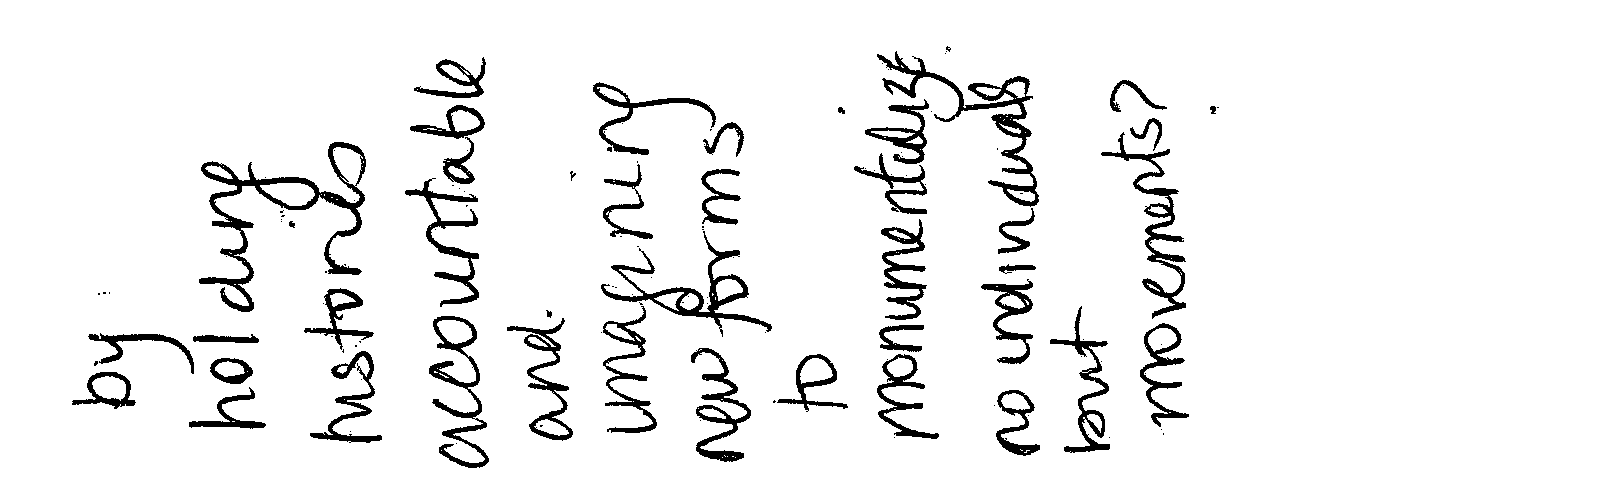 by
holding
histories
accountable
and
imagining
new forms
to
monumentalize
no individuals
but
movements?